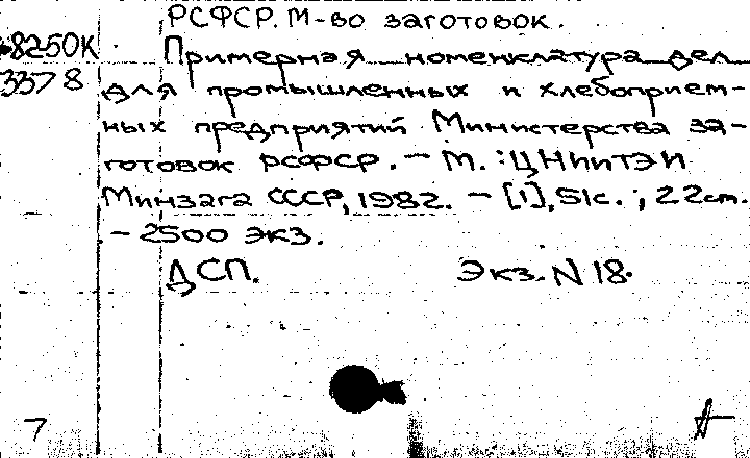 РСФСР. М-во заготовок.
8250К
Примерная номенклатура дел
3378
для промышленных и хлебоприем-
ных предприятий Министерства за-
готовок РСФСР. - М. : ЦНИИТЭИ
Минзага СССР, 1982. - [1], 51с. ; 22см.
- 2500 экз.
ДСП. Экз. N 18.
7